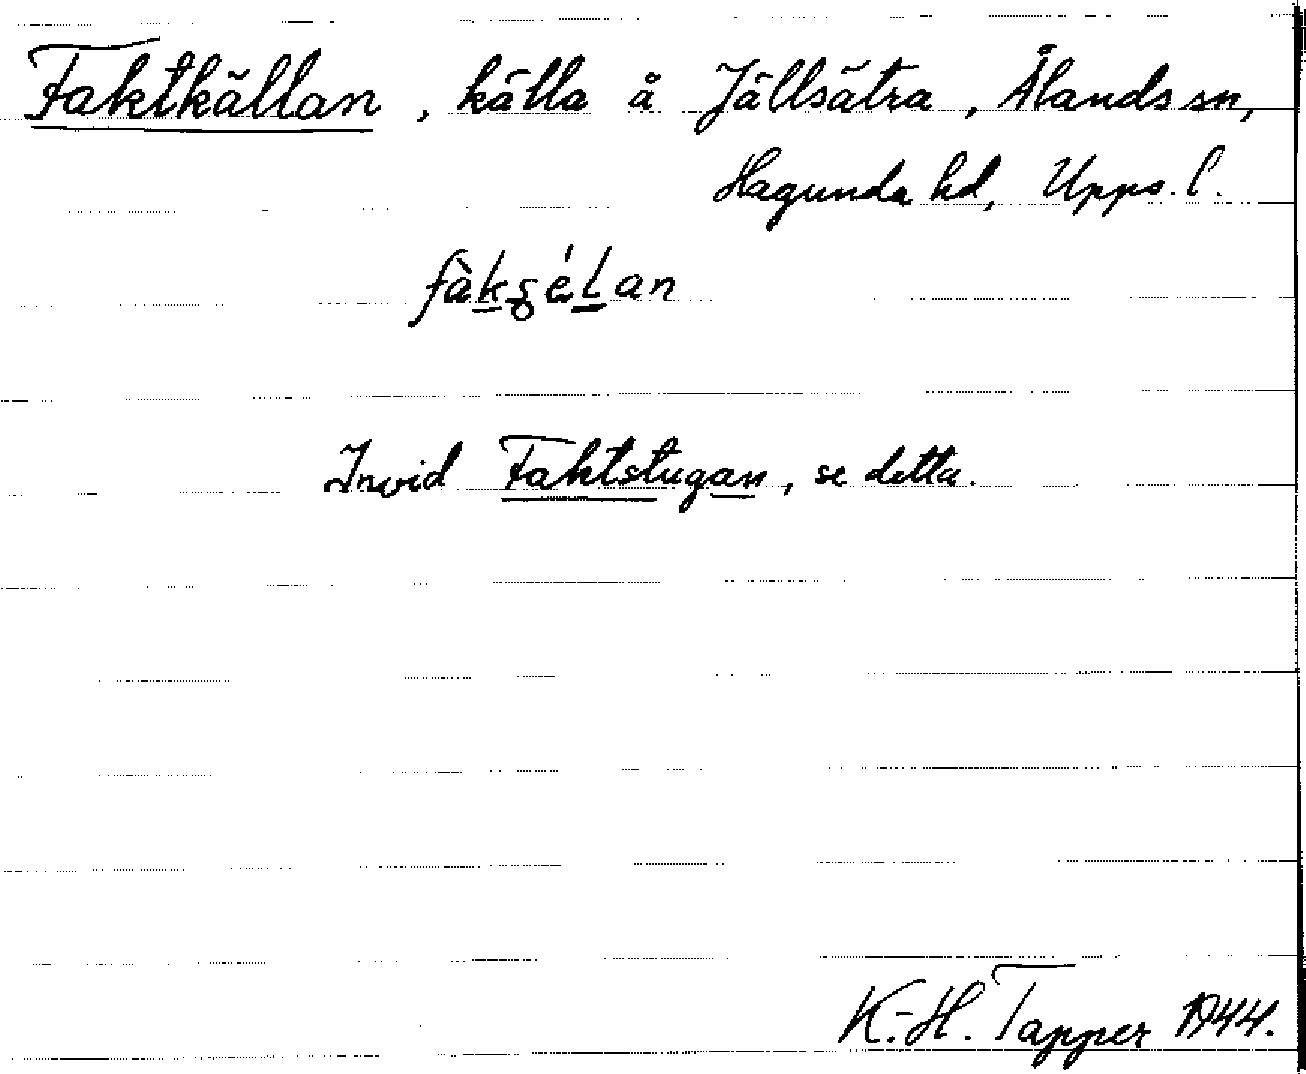 Faktkällan, källa å Jällsätra, Ålands sn,
Hagunda hd, Upps. l.
fàkʂéLan
Invid Faktstugan, se detta.
K.-H. Tapper 1944.